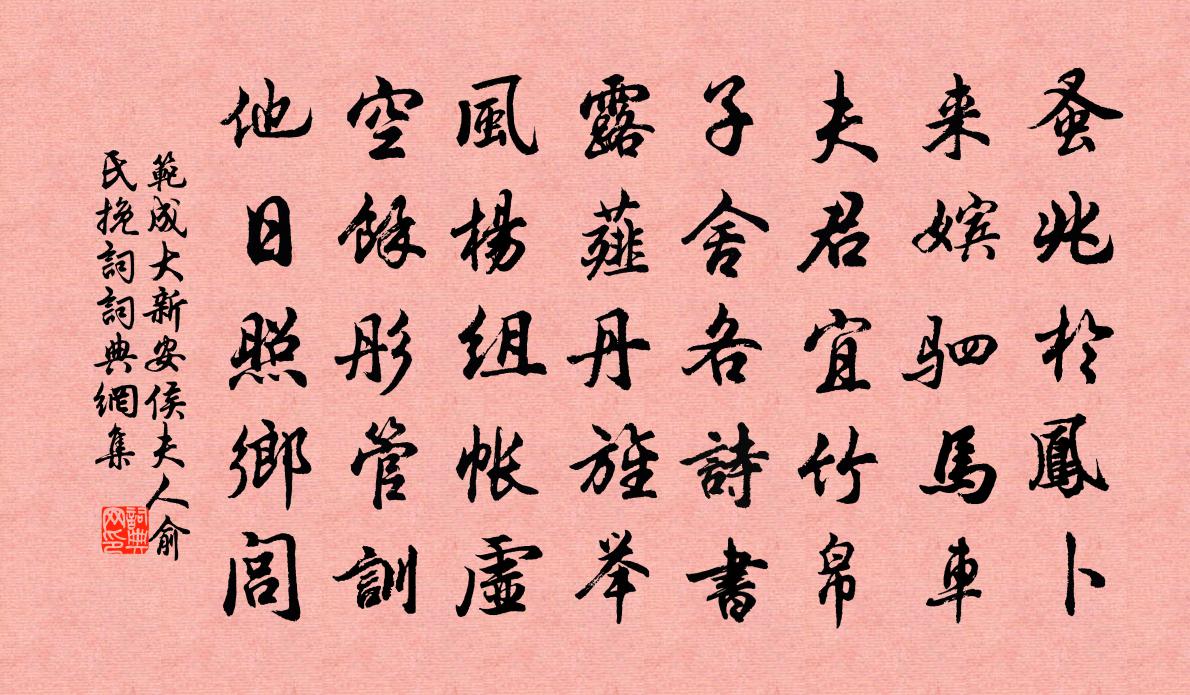 蚤兆於鳳卜
来嫔驷馬車
夫君宜竹帛
子舍各詩書
露薤丹旌举
風楊组帐虚
空餘彤管訓
他日照鄉閭
範成大新安侯夫人俞
氏挽詞詞典網集
詞典网印